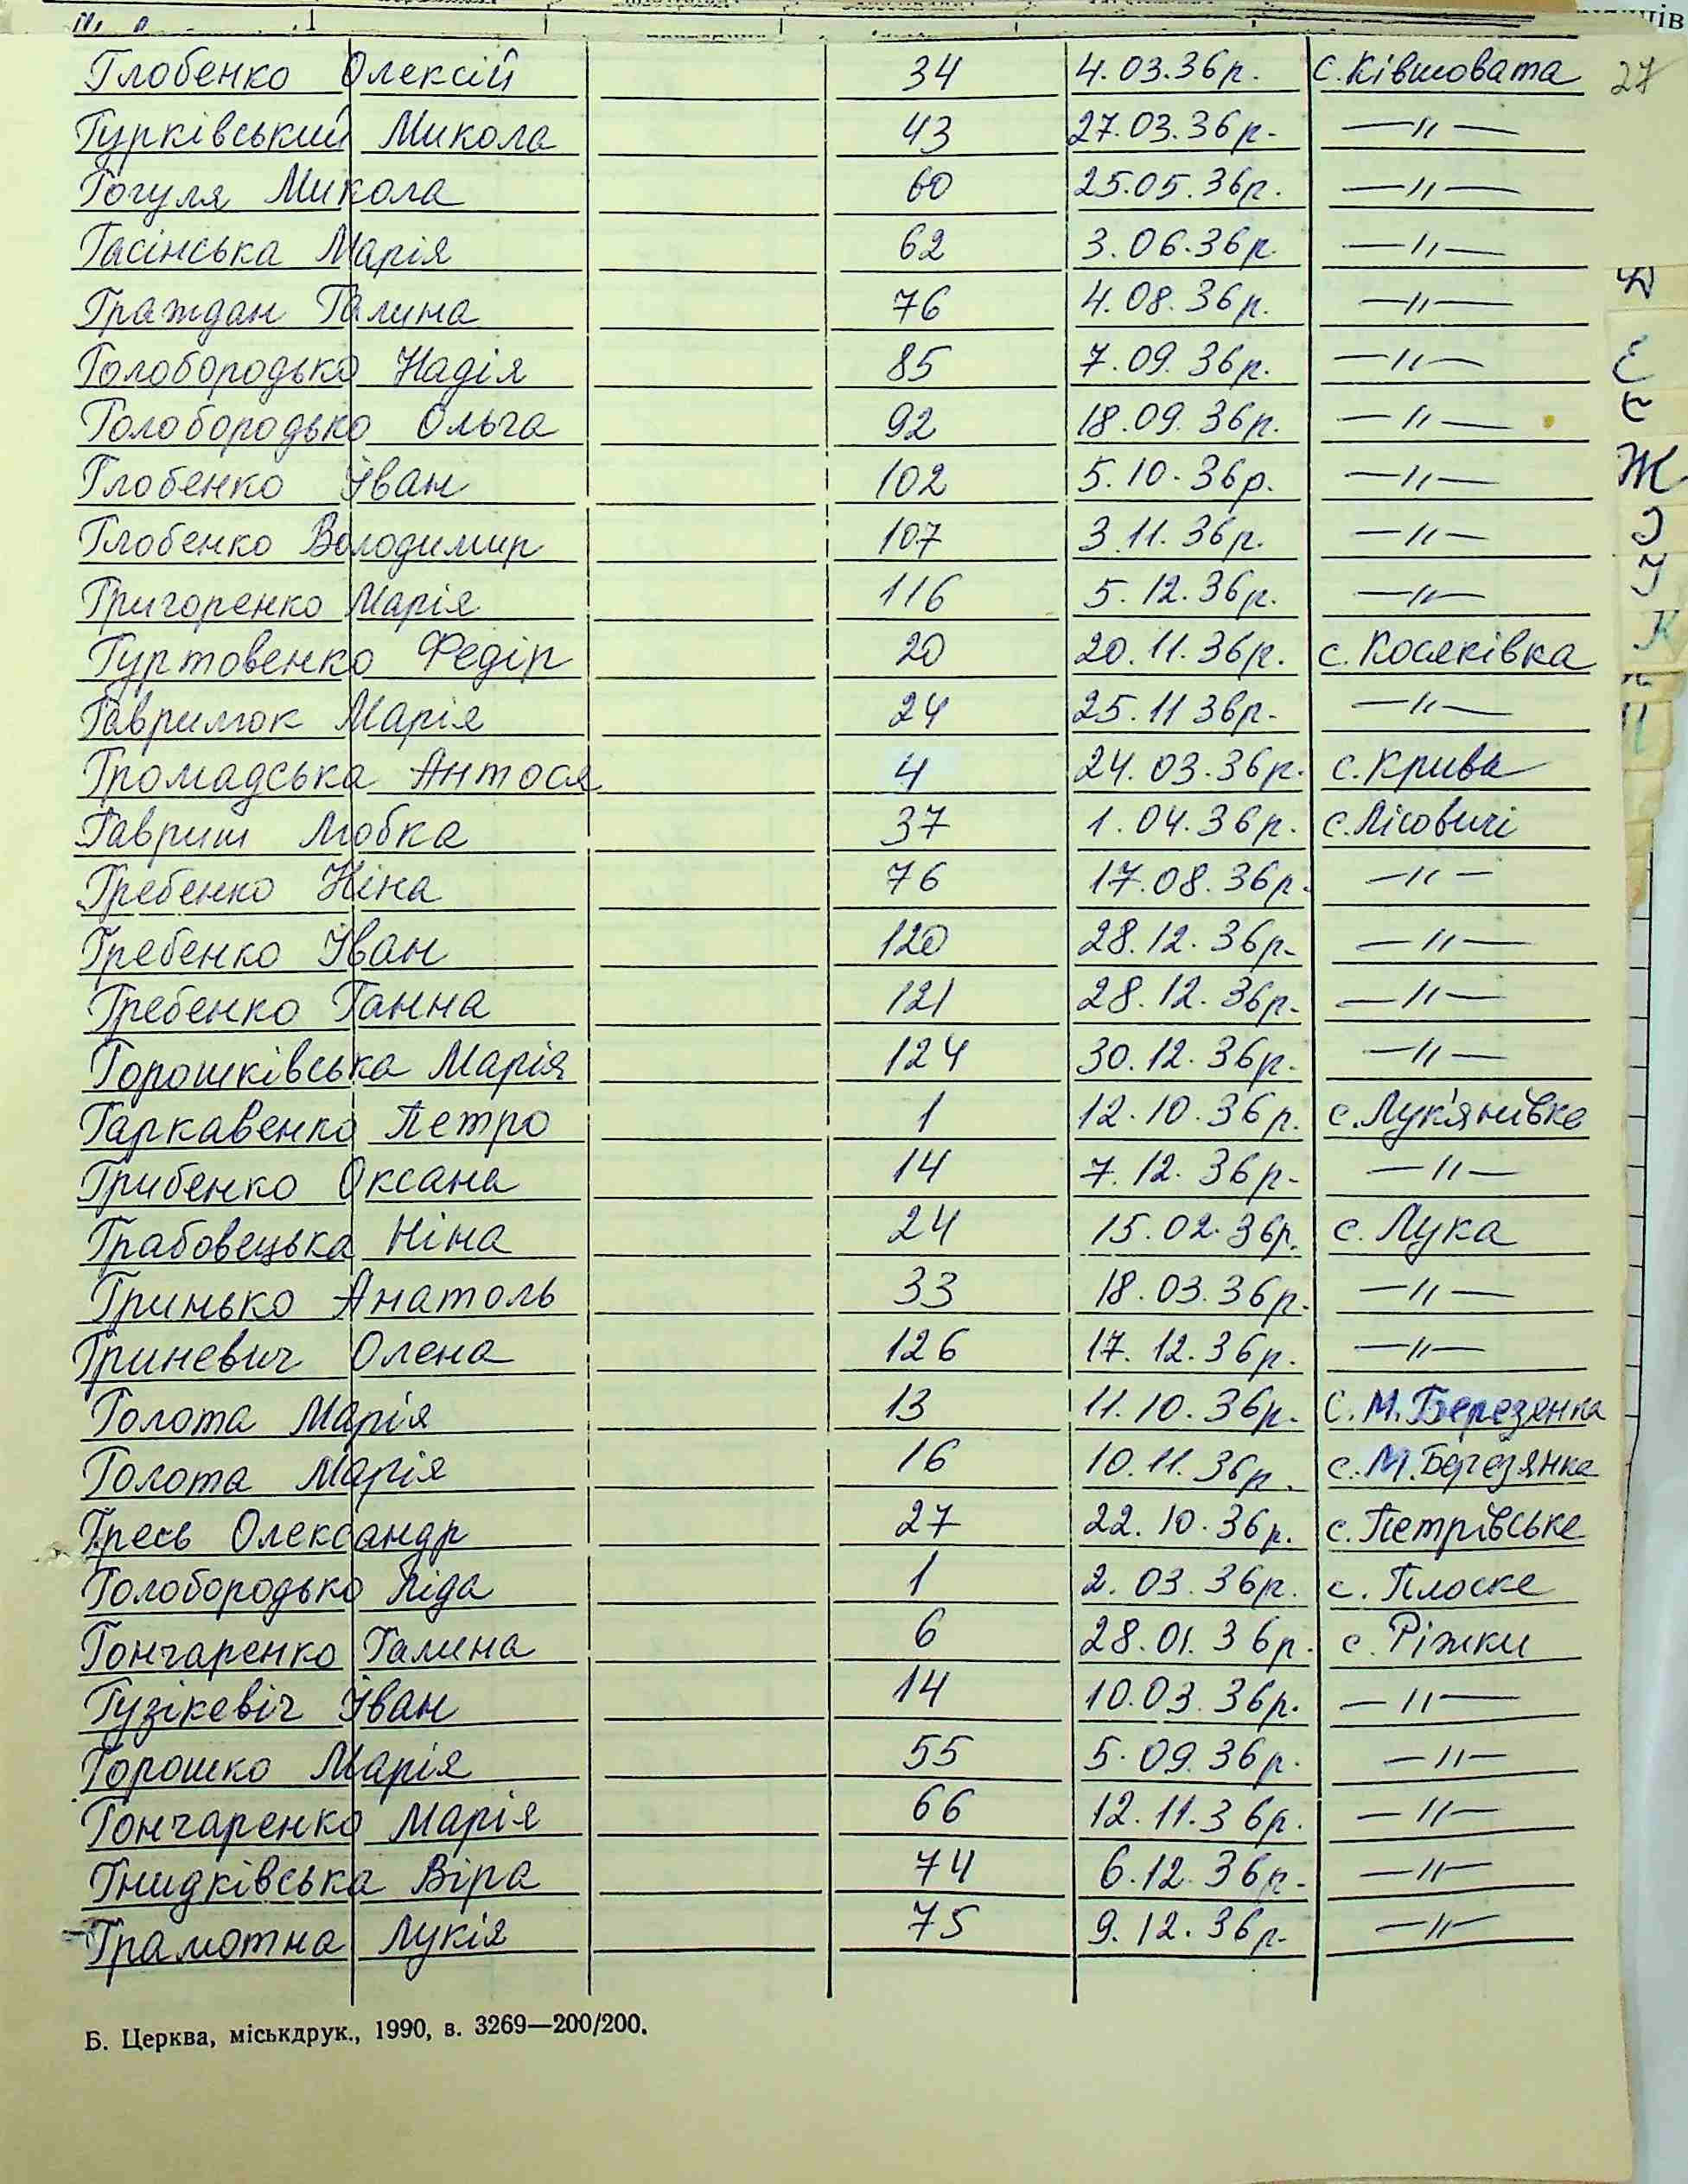 Глобенко Олексій 34 4.03.36р. с. Ківшовата 27
Гурківський Микола 43 27.03.36р. —"—
Гогуля Микола 60 25.05.36р. —"—
Гасінська Марія 62 3.06.36р. —"—
Граждан Галина 76 4.08.36р. —"—
Голобородько Надія 85 7.09.36р. —"—
Голобородько Ольга 92 18.09.36р. —"—
Глобенко Іван 102 5.10.36р. —"—
Глобенко Володимир 107 3.11.36р. —"—
Григоренко Марія 116 5.12.36р. —"—
Гуртовенко Федір 20 20.11.36р. с. Косяківка
Гаврилюк Марія 24 25.11 36р. —"—
Громадська Антося 4 24.03.36р. с. Крива
Гавриш Любка 37 1.04.36р. с. Лісовичі
Гребенко Ніна 76 17.08.36р. —"—
Гребенко Іван 120 28.12.36р. —"—
Гребенко Ганна 121 28.12.36р. —"—
Горошківська Марія 124 30.12.36р. —"—
Гаркавенко Петро 1 12.10.36р. с. Лук'янівка
Грибенко Оксана 14 7.12.36р. —"—
Грабовецька Ніна 24 15.02.36р. с. Лука
Гринько Анатоль 33 18.03.36р. —"—
Гриневич Олена 126 17.12.36р. —"—
Голота Марія 13 11.10.36р. с. М. Березянка
Голота Марія 16 10.11.36р. с. М. Березянка
Гресь Олександр 27 22.10.36р. с. Петрівське
Голобородько Ліда 1 2.03.36р. с. Плоске
Гончаренко Галина 6 28.01.36р. с. Ріжки
Гузікевіч Іван 14 10.03.36р. —"—
Горошко Марія 55 5.09.36р. —"—
Гончаренко Марія 66 12.11.36р. —"—
Гнидківська Віра 74 6.12.36р. —"—
Грамотна Лукія 75 9.12.36р. —"—
Б. Церква, міськдрук., 1990, в. 3269—200/200.
Д
Є
Е
Ж
К